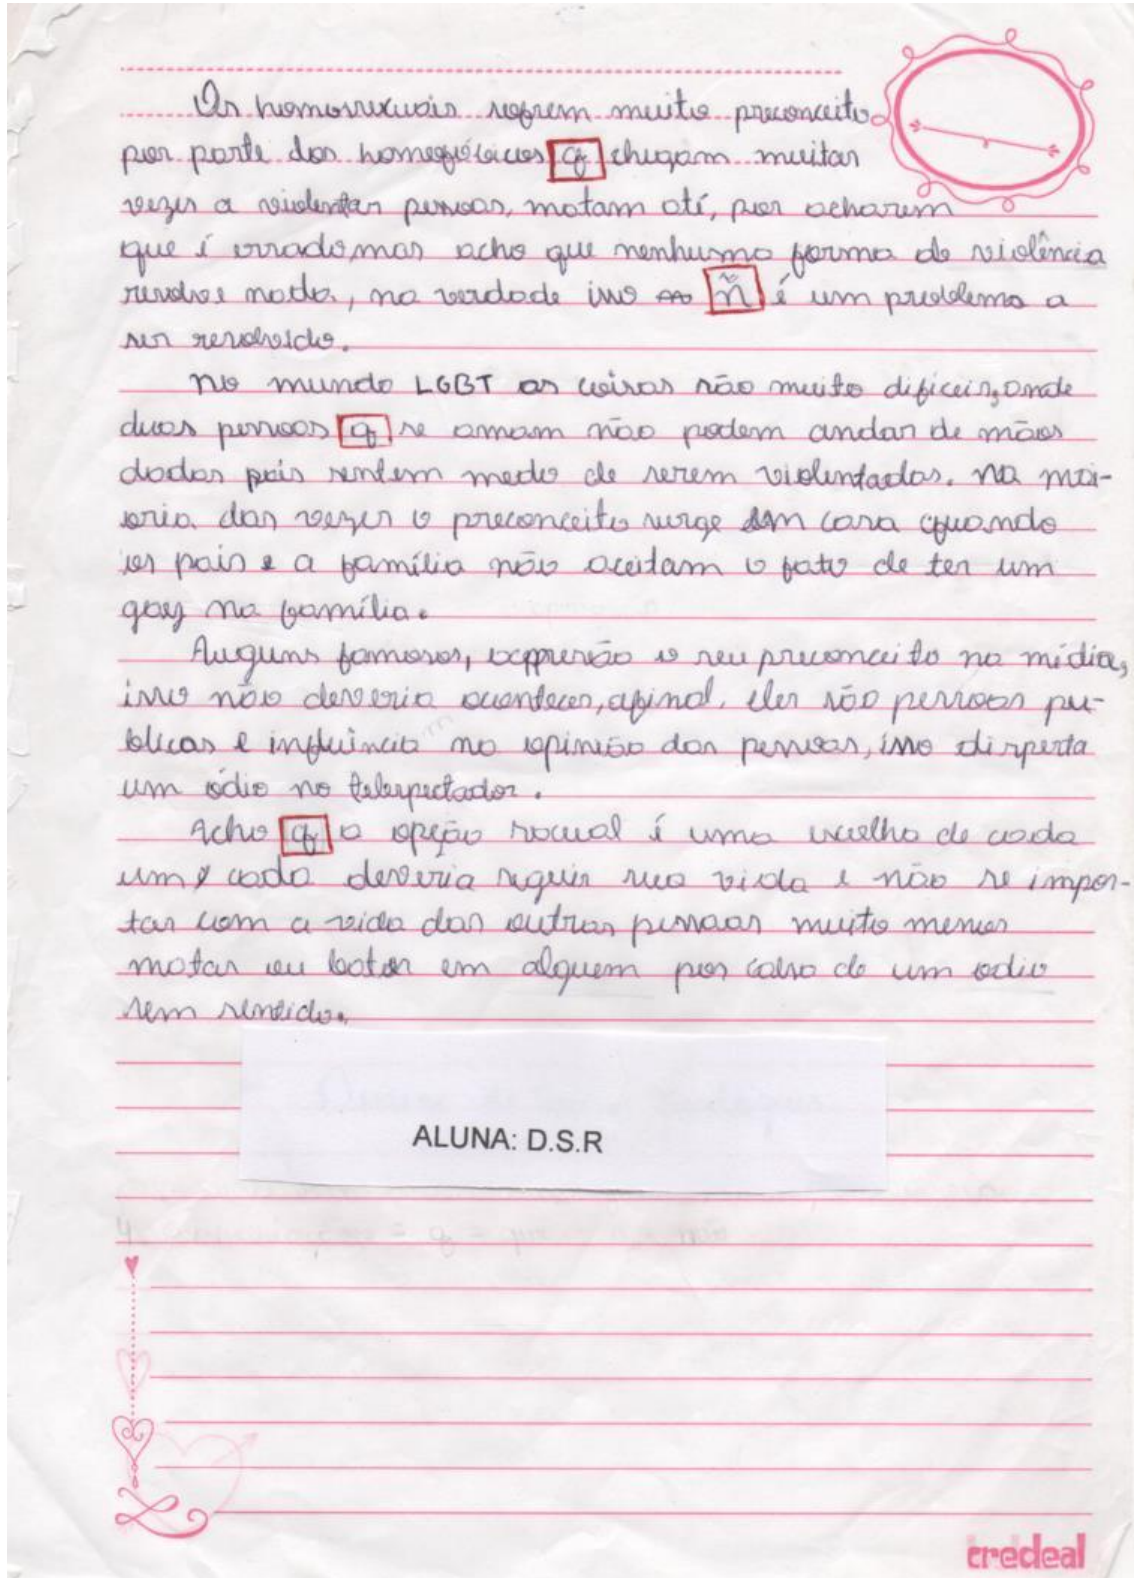 Os homossexuais sofrem muito preconceito
por parte dos homofóbicos q chegam muitas
vezes a violentar pessoas, matam até, por acharem
que é errado, mas acho que nenhuma forma de violência
resolve nada, na verdade isso ñ é um problema a
ser resolvido.
No mundo LGBT as coisas são muito dificeis, onde
duas pessoas q se amam não podem andar de mãos
dadas pois sentem medo de serem violentadas. Na mai-
oria das vezes o preconceito surge em casa quando
os pais e a família não aceitam o fato de ter um
gay na família.
Auguns famosos, expressão o seu preconceito na mídia,
isso não deveria acontecer, afinal, eles são pessoas pu-
blicas e influência na opinião das pessoas, isso disperta
um ódio no telespectador.
Acho q a opção sexual é uma escolha de cada
um, cada deveria seguir sua vida e não se impor-
tar com a vida das outras pessoas muito menos
matar ou bater em alguem por calso de um odio
sem sentido.
ALUNA: D.S.R
credeal